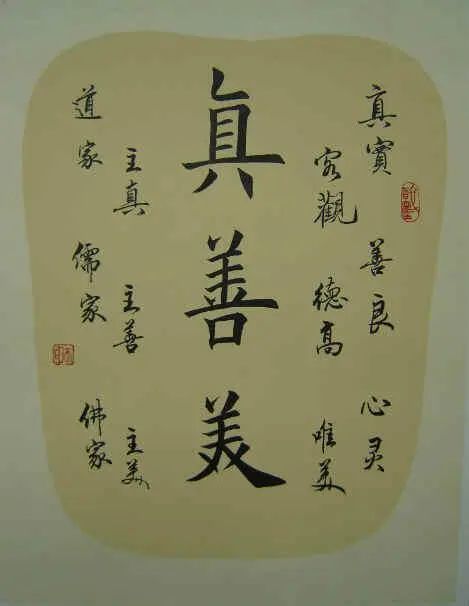 真實 善良 心灵
客觀 德高 唯美
真善美
主真 主善 主美
道家 儒家 佛家